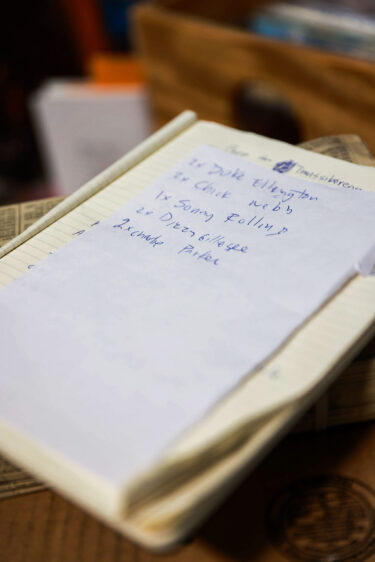 2x Duke Ellengton
2x Chick Webb
1x Sonny Rollins
2x Dizzy Gillespie
2x Charlie Parker